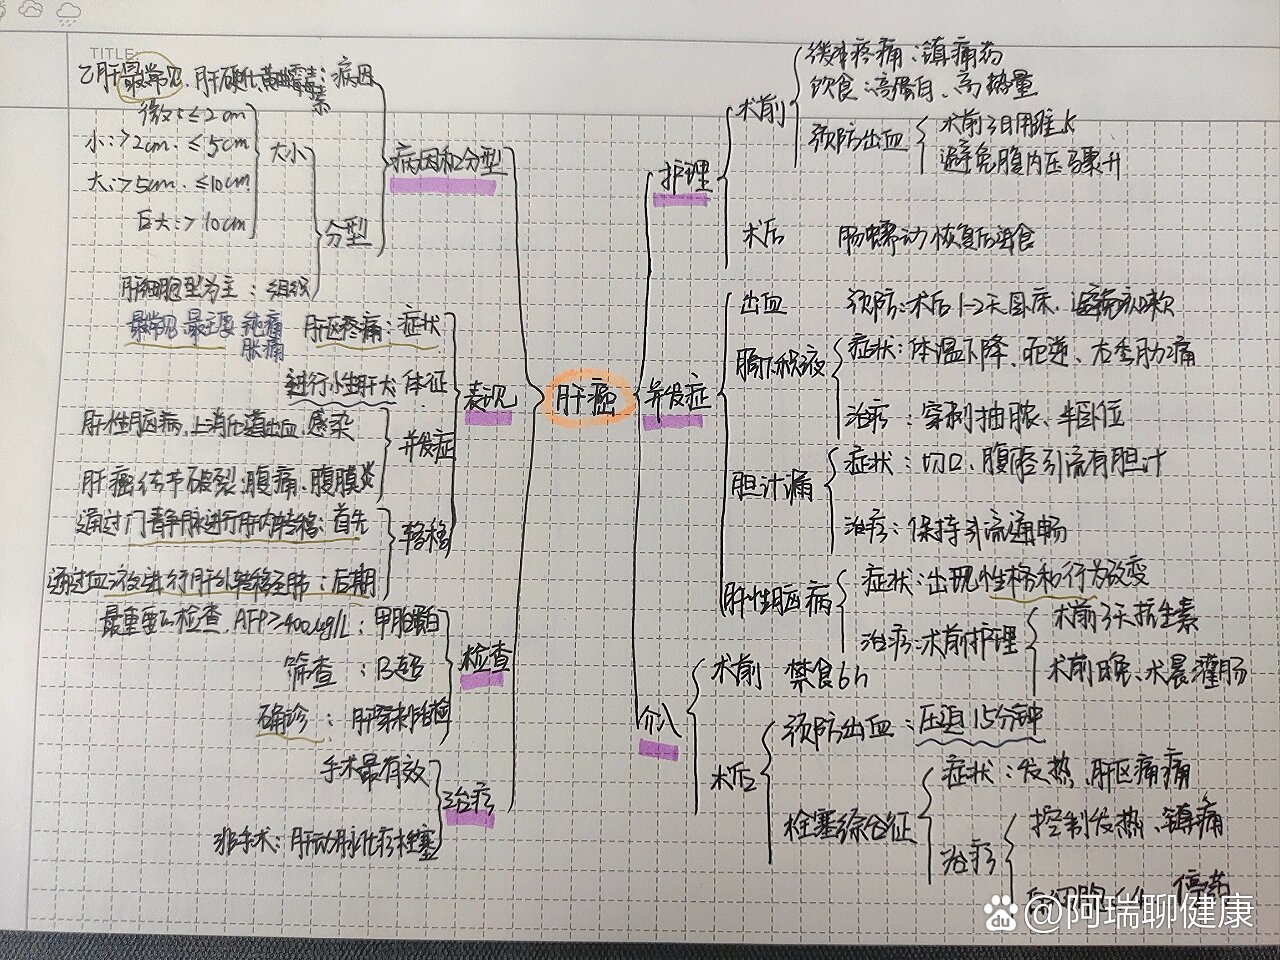 TITLE:
乙肝最常见、肝硬化、黄曲霉毒素：病因
微：≤2cm
小：>2cm、≤5cm
大：>5cm、≤10cm
巨大：>10cm
大小
分型
肝细胞型为主：组织
病因和分型
最常见 最主要 钝痛 胀痛
肝区疼痛：症状
进行性肝大 体征
肝性脑病、上消化道出血、感染
肝癌结节破裂：腹痛、腹膜炎
并发症
通过门静脉进行肝内转移：首先
通过血液进行肝外转移至肺：后期
转移
表现
最重要的检查、AFP≥400ug/L：甲胎蛋白
筛查：B超
确诊：肝穿刺活检
检查
手术最有效
非手术：肝动脉化疗栓塞
治疗
肝癌
护理
术前
缓解疼痛：镇痛药
饮食：高蛋白、高热量
预防出血
术前3日用维K
避免腹内压骤升
术后 肠蠕动恢复后进食
并发症
出血 预防：术后1-2天卧床、避免咳嗽
膈下积液
症状：体温下降、呃逆、右季肋痛
治疗：穿刺抽脓、半卧位
胆汁漏
症状：切口、腹腔引流有胆汁
治疗：保持引流通畅
肝性脑病
症状：出现性格和行为改变
治疗：术前护理
术前3天抗生素
术前晚、术晨灌肠
介入
术前 禁食6h
术后
预防出血：压迫15分钟
栓塞综合征
症状：发热、肝区痛痛
治疗
控制发热、镇痛
停药
@阿瑞聊健康